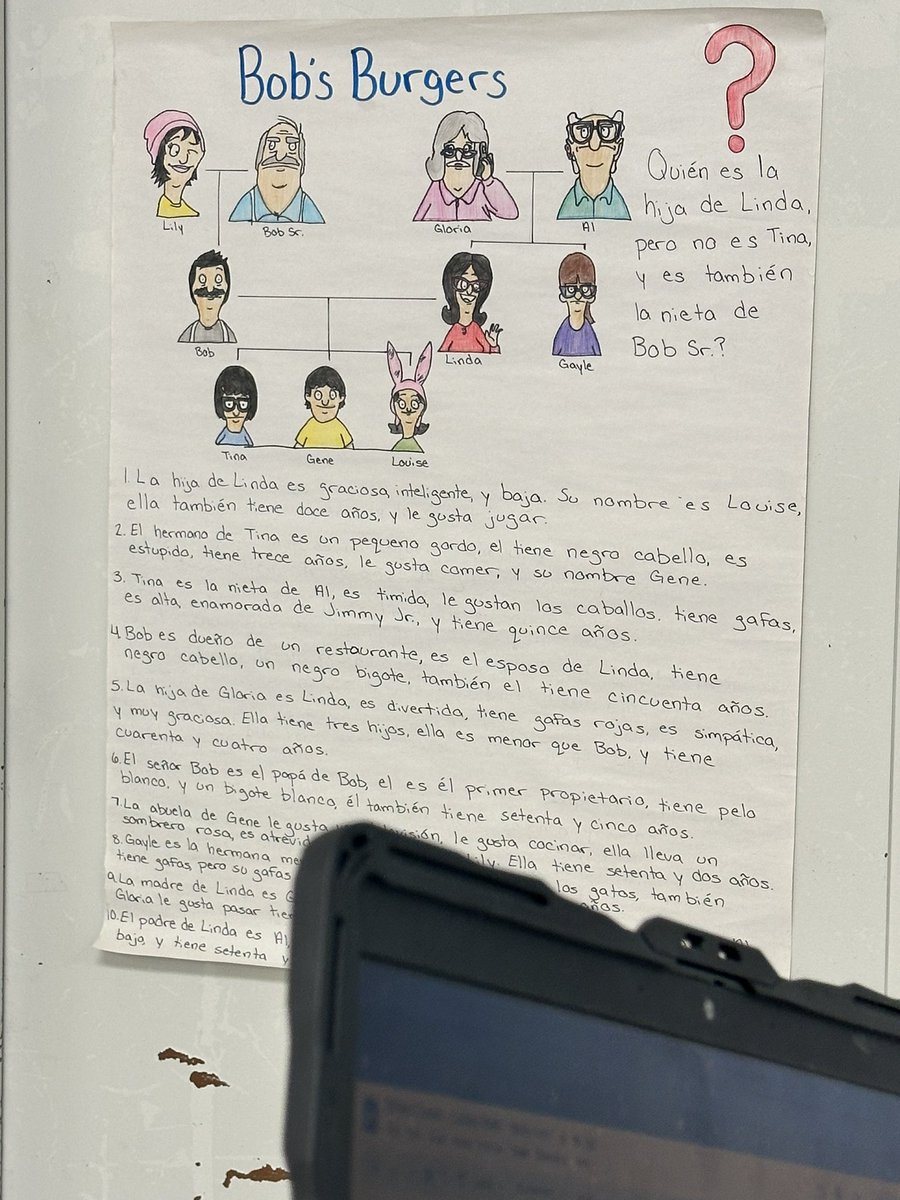 Bob's Burgers
?
Lily
Bob Sr.
Gloria
Al
Quién es la
hija de Linda,
pero no es Tina,
y es también
la nieta de
Bob Sr.?
Bob
Linda
Gayle
Tina
Gene
Louise
1. La hija de Linda es graciosa, inteligente, y baja. Su nombre es Louise,
ella también tiene doce años, y le gusta jugar.
2. El hermano de Tina es un pequeno gordo, el tiene negro cabello, es
estupido, tiene trece años, le gusta comer, y su nombre Gene.
3. Tina es la nieta de Al, es timida, le gustan los caballos. tiene gafas,
es alta, enamorada de Jimmy Jr., y tiene quince años.
4. Bob es dueño de un restaurante, es el esposo de Linda, tiene
negro cabello, un negro bigote, también el tiene cincuenta años.
5. La hija de Gloria es Linda, es divertida, tiene gafas rojas, es simpática,
y muy graciosa. Ella tiene tres hijos, ella es menor que Bob, y tiene
cuarenta y cuatro años.
6. El señor Bob es el papá de Bob, el es él primer propietario, tiene pelo
blanco, y un bigote blanco, él también tiene setenta y cinco años.
7. La abuela de Gene le gusta le gusta cocinar, ella lleva un
sombrero rosa, es Ella tiene setenta y dos años.
8. Gayle es la hermana los gatos, también
tiene gafas, pero su gafas años.
9. La madre de Linda es
Gloria le gusta pasar
10. El padre de Linda es Al,
bajo, y tiene setenta y